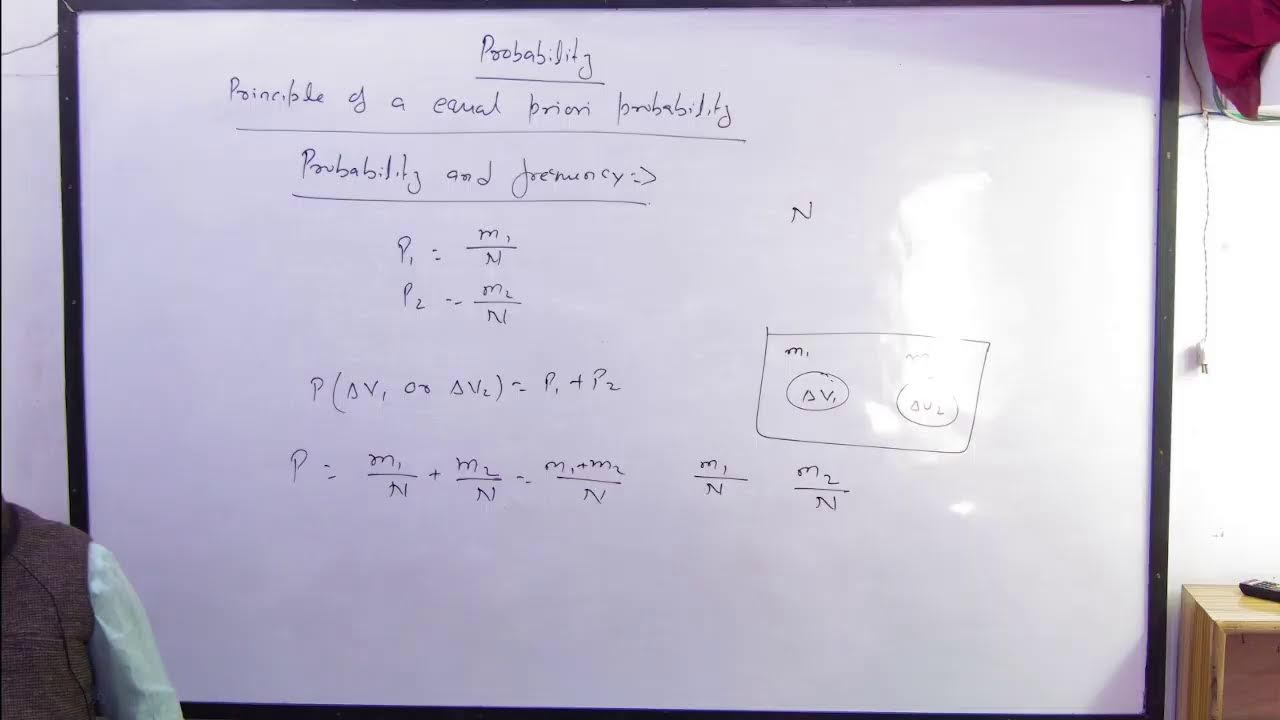 Probability
Principle of a equal priori probability
Probability and frequency ⇒
P₁ = m₁/N
N
P₂ = m₂/N
m₁ m
P(ΔV₁ or ΔV₂) = P₁ + P₂
ΔV₁ ΔV₂
P = m₁/N + m₂/N = m₁+m₂/N m₁/N m₂/N